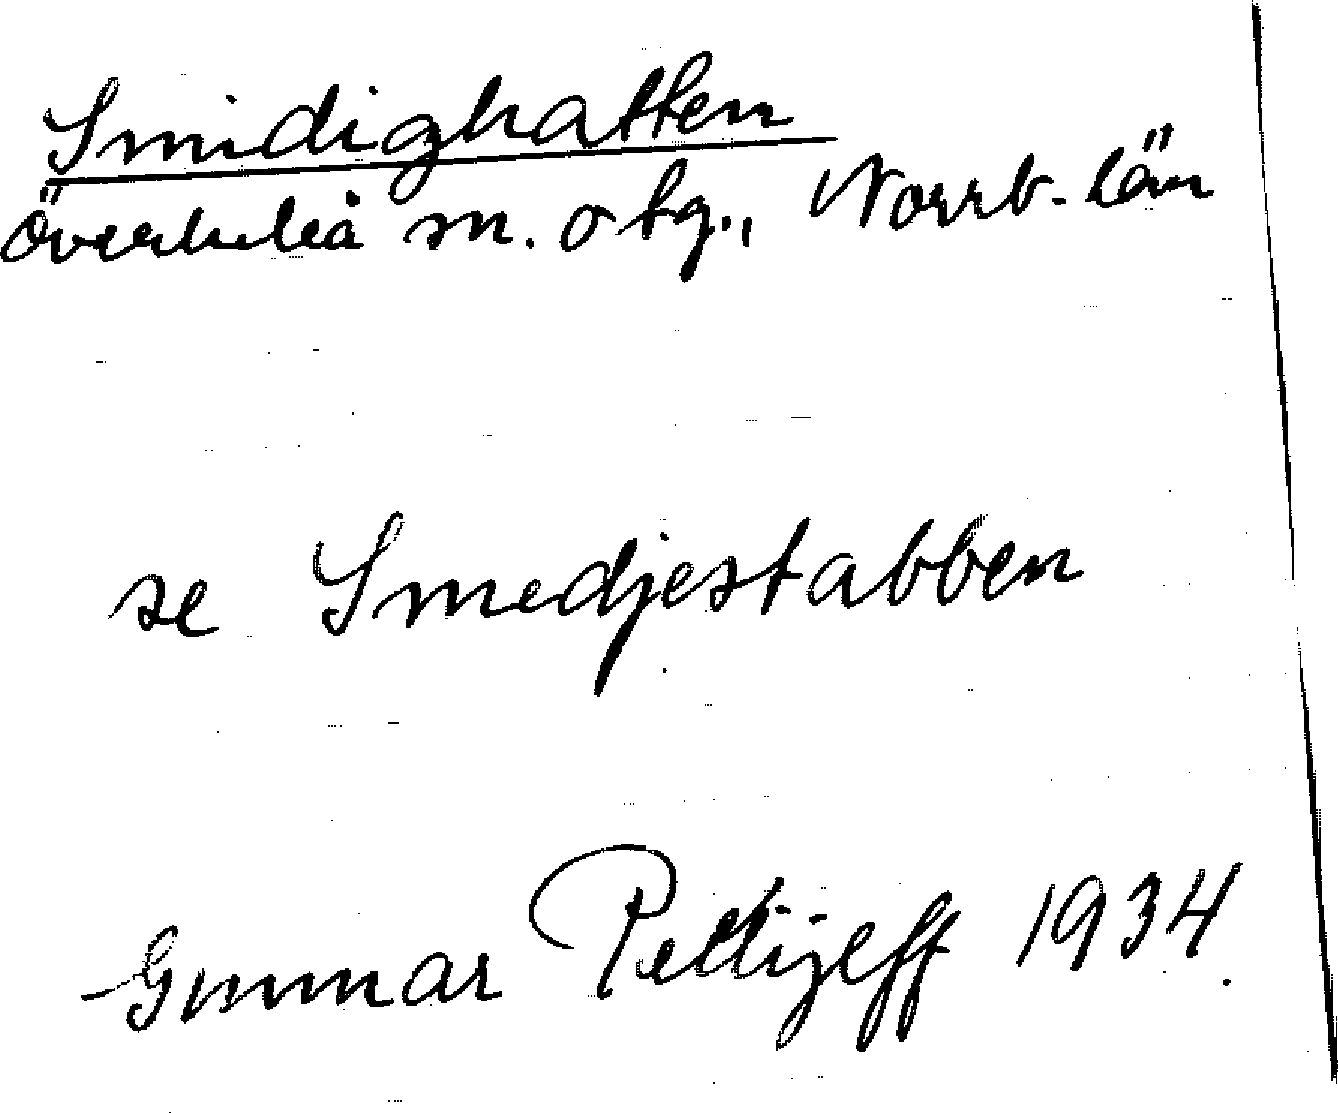 Smidighatten
Överluleå sn. o tg., Norrb. län
se Smedjestabben
Gunnar Pellijeff 1934.